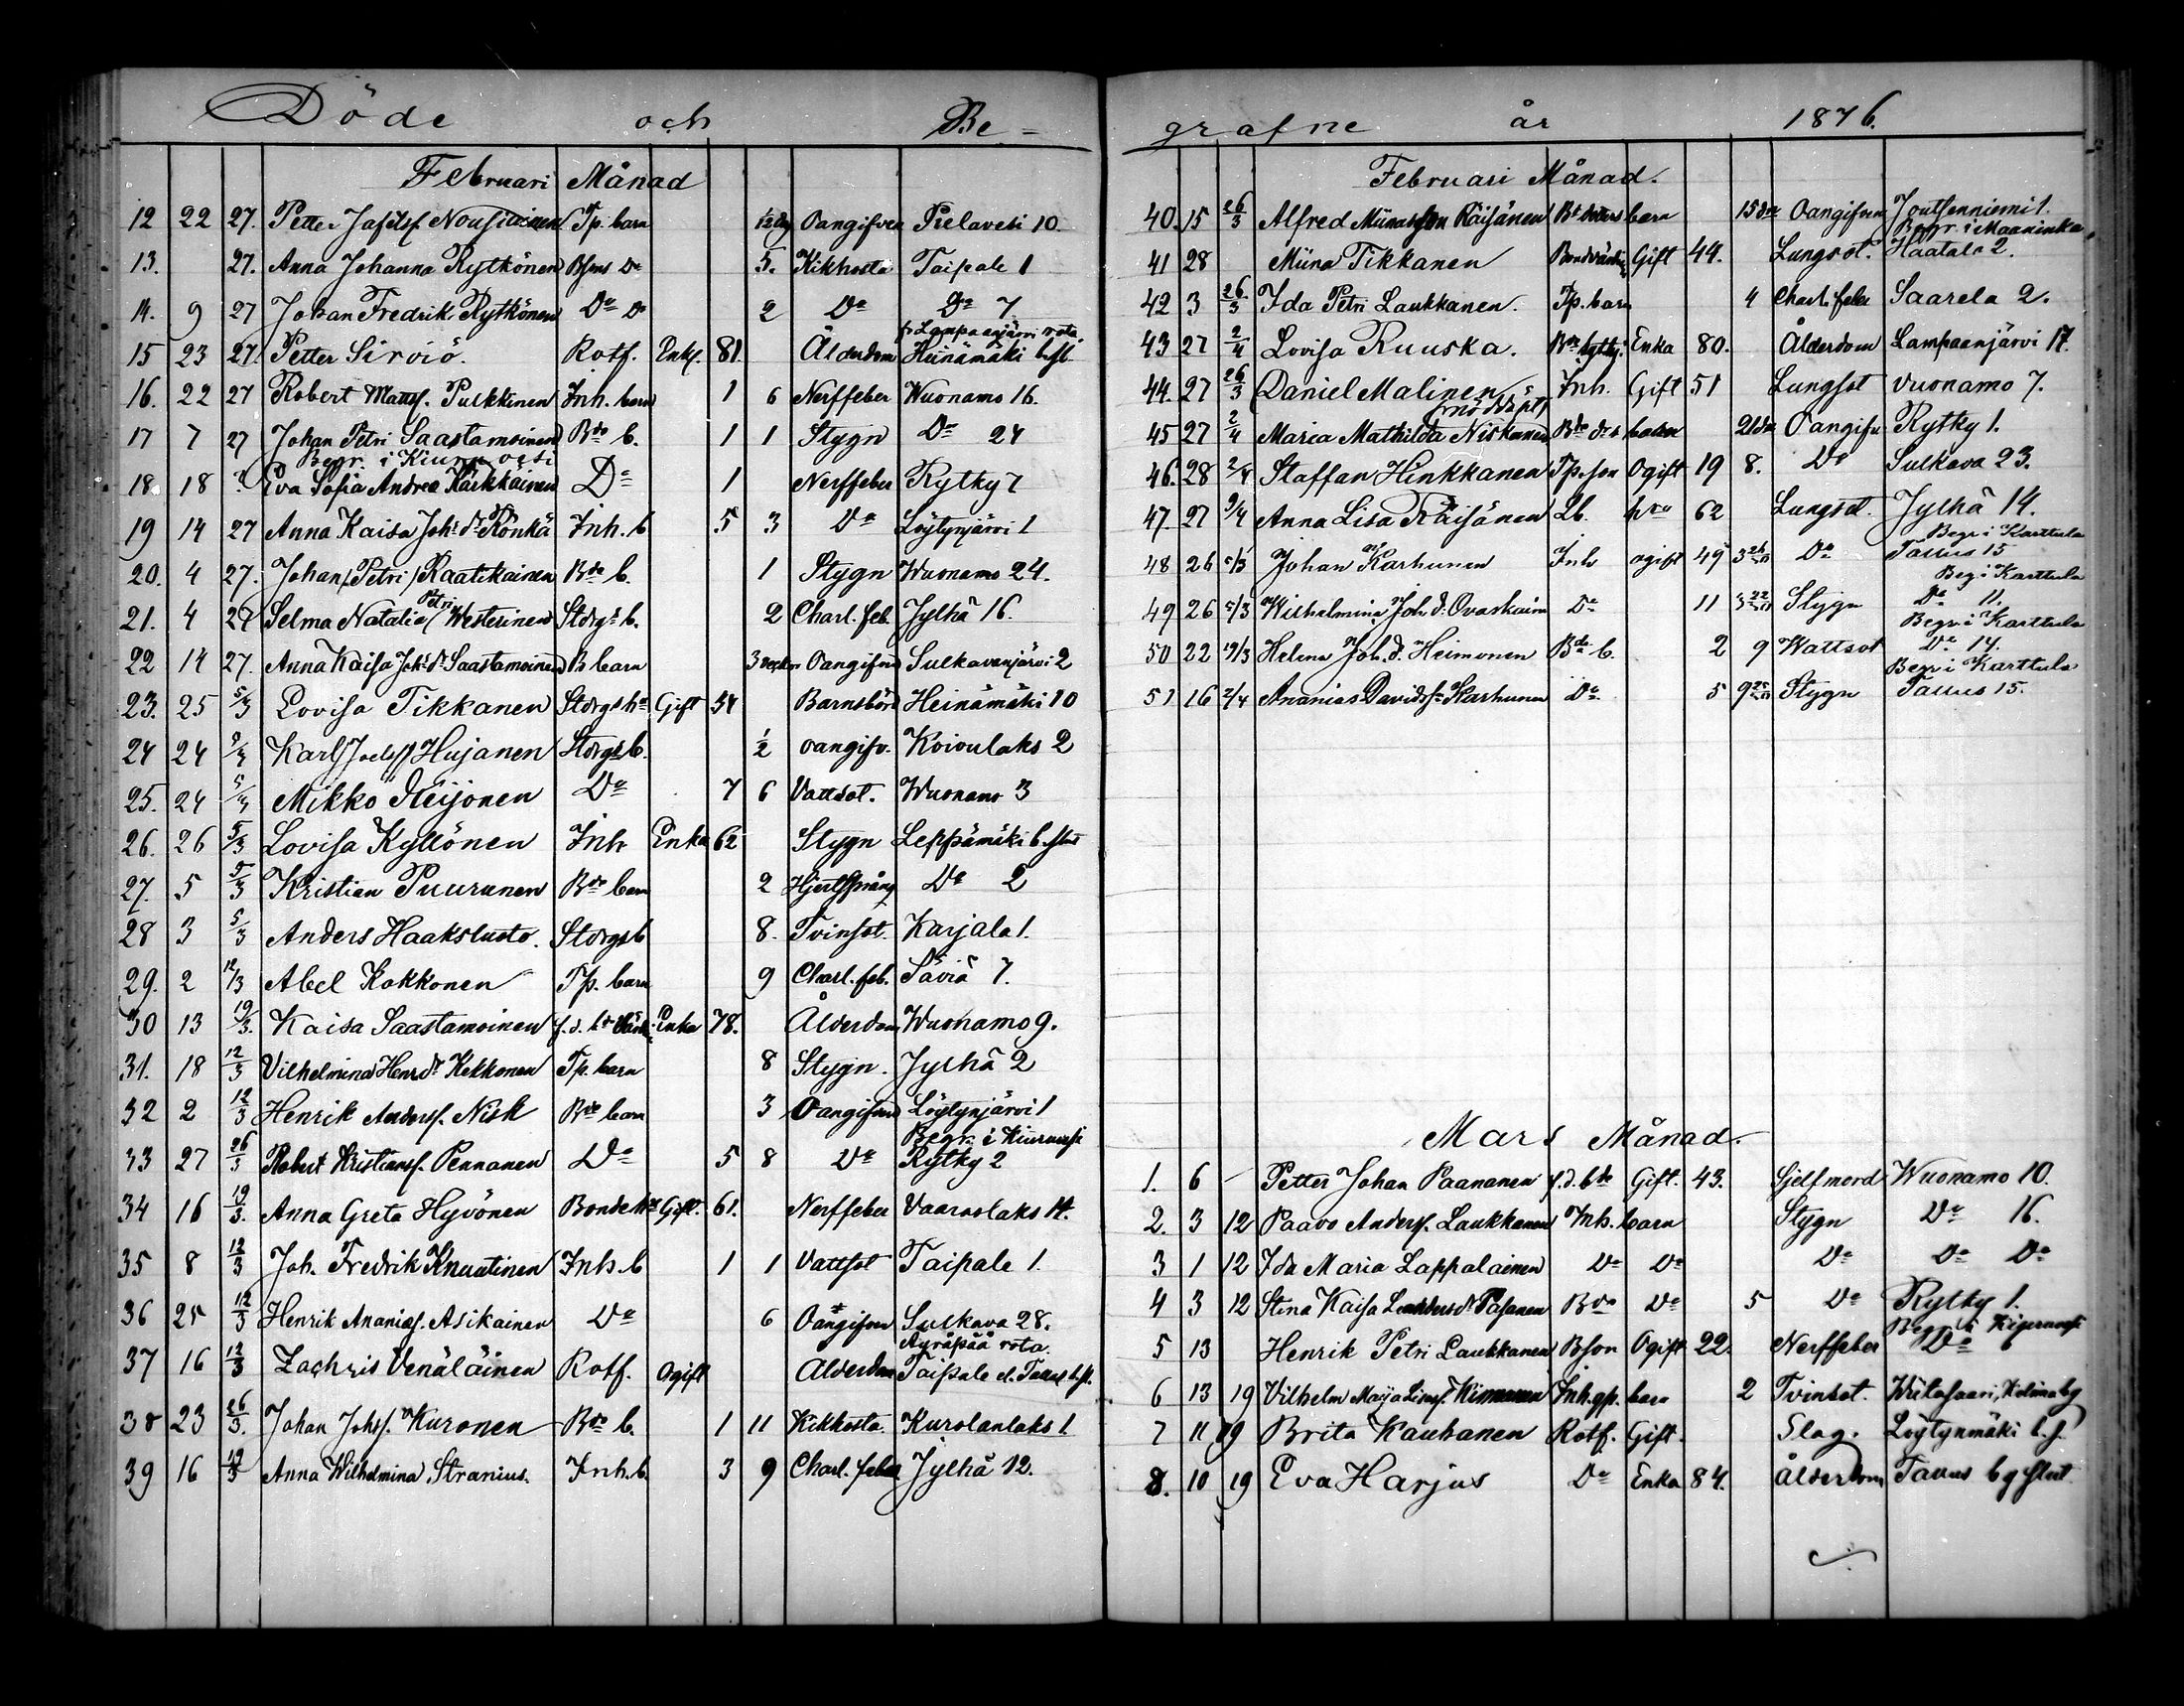 Döde och Be-
Februari Månad
12 22 27. Petter Nousiainen Tp. barn Oangifven Pielavesi 10
13. 27. Anna Johanna Rytkönen Dº 5. Kikhosta Taipale 1
14. 9 27 Johan Fredrik Rytkönen Dº Dº 2 Dº Dº 7
15 23 27. Petter Sirviö. Rotf. Enkl. 81 Ålderdom Heinämäki
16. 22 27 Robert Mattss. Pulkkinen Inh. barn 1 6 Nerffeber Wuonamo 16.
17 7 27 Johan Petri Saastamoinen Bde b. 1 1 Stygn Dº 24
Begr. i Kiuruvesi
18. 18 ? Eva Sofia Andrea Kärkkäinen Dº 1 Nerffeber Rytky 7
19 14 27 Anna Kaisa Joh. dr Könkä Inh. b 5 3 Dº Löytynjärvi 1
20. 4 27. Johan (Petri) Raatikainen Bde b. 1 Stygn Wuonamo 24.
21. 4 27 Selma Natalia Petri Westerinen Storgs b. 2 Charl. feb. Jylhä 16.
22 14 27. Anna Kaisa Joh. dr Saastamoinen B barn 3 veckor Oangifven Sulkavanjärvi 2
23. 25 5/3 Lovisa Tikkanen Gift 34 Barnsbörd Heinämäki 10
24 24 5/3 Karl Hujanen Storgs b. 1/2 oangifv. Koivulaks 2
25. 24 5/3 Mikko Keijonen Dº 7 6 Vattsot. Wuonamo 3
26. 26 5/3 Lovisa Kyllönen Inh Enka 62 Stygn Leppämäki b. slut
27. 5 5/3 Kristian Puurunen Bde barn 2 Hjertsprång Dº 2
28 3 5/3 Anders Haaksluoto. Storgs b 8. Tvinsot. Karjala 1.
29. 2 12/3 Abel Kokkonen Tp. barn 9 Charl. feb. Säviä 7.
30 13 19/3. Kaisa Saastamoinen Enka 78. Ålderdom Wuonamo 9.
31. 18 12/3 Vilhelmina Henr. dr Kekkonen Tp. barn 8 Stygn. Jylhä 2
32 2 12/3 Henrik Anderss. Nisk Bde barn 3 Oangifven Löytynjärvi 1
Begr. i Kiuruvesi
33 27 26/3 Robert Kristianss. Pennanen Dº 5 8 Dº Rytky 2
34 16 19/3. Anna Greta Hyvönen Gift. 61. Nerffeber Vaaraslaks 14.
35 8 12/3 Joh. Fredrik Knuutinen Inh. b 1 1 Vattsot Taipale 1.
36 25 12/3 Henrik Ananias. Asikainen Dº 6 Oangifven Sulkava 28.
Äyräpää rota.
37 16 12/3 Zachris Venäläinen Rotf. Ogift Ålderdom Taipale
38 23 26/3. Johan Johs. Kuronen Bde b. 1 11 Kikhosta. Kurolanlaks 1
39 16 19/3 Anna Wilhelmina Stranius. Inh. b. 3 9 Charl. feber Jylhä 12.
grafne år 1876.
Februari Månad.
40. 15 26/3 Alfred Räisänen barn Oangifven Joutsenniemi 1.
Begr. i Maaninka
41 28 Miina Tikkanen Gift 44. Lungsot. Haatala 2.
42 3 26/3 Ida Petri Laukkanen. Tp. barn 4 Charl. feber Saarela 2.
43 27 2/4 Lovisa Ruuska. Enka 80. Ålderdom Lampaanjärvi 17.
44. 27 26/3 Daniel Malinen Inh. Gift 51 Lungsot Vuonamo 7.
45 27 2/4 Maria Mathilda Niskanen Oangifv Rytky 1.
46. 28 2/4 Staffan Hinkkanen Tp. son Ogift 19 8. Dº Sulkava 23.
47. 27 9/4 Anna Lisa Räisänen Lb. hru 62 Lungsot. Jylhä 14.
Begr. i Karttula
48 26 5/3 Johan Karhunen Inh ogift 49 Dº Tallus 15
Begr. i Karttula
49 26 5/3 Wilhelmina Joh. d. Ovaskain Dº 11 Stygn Dº 11.
Begr. i Karttula
50 22 19/3 Helena Joh. d. Heimonen Bde b. 2 9 Wattsot Dº 14.
Begr. i Karttula
51 16 2/4 Ananias Davids s. Karhunen Dº 5 Stygn Tallus 15.
Mars Månad.
1. 6 – Petter Johan Paananen f. d. bde Gift. 43. Sjelfmord Wuonamo 10.
2. 3 12 Paavo Anderss. Laukkanen Inh. barn Stygn Dº 16.
3 1 12 Ida Maria Lappalainen Dº Dº Dº Dº Dº
4 3 12 Stina Kaisa Pasanen Bde Dº 5 Dº Rytky 1.
5 13 Henrik Petri Laukkanen Bson Ogift 22. Nerffeber Dº 6
6 13 19 Vilhelm barn 2 Tvinsot.
7 11 19 Brita Kauhanen Rotf. Gift. Slag. Löytynmäki b. s.
8. 10 19 Eva Harjus Dº Enka 84. Ålderdom Tallus by slut